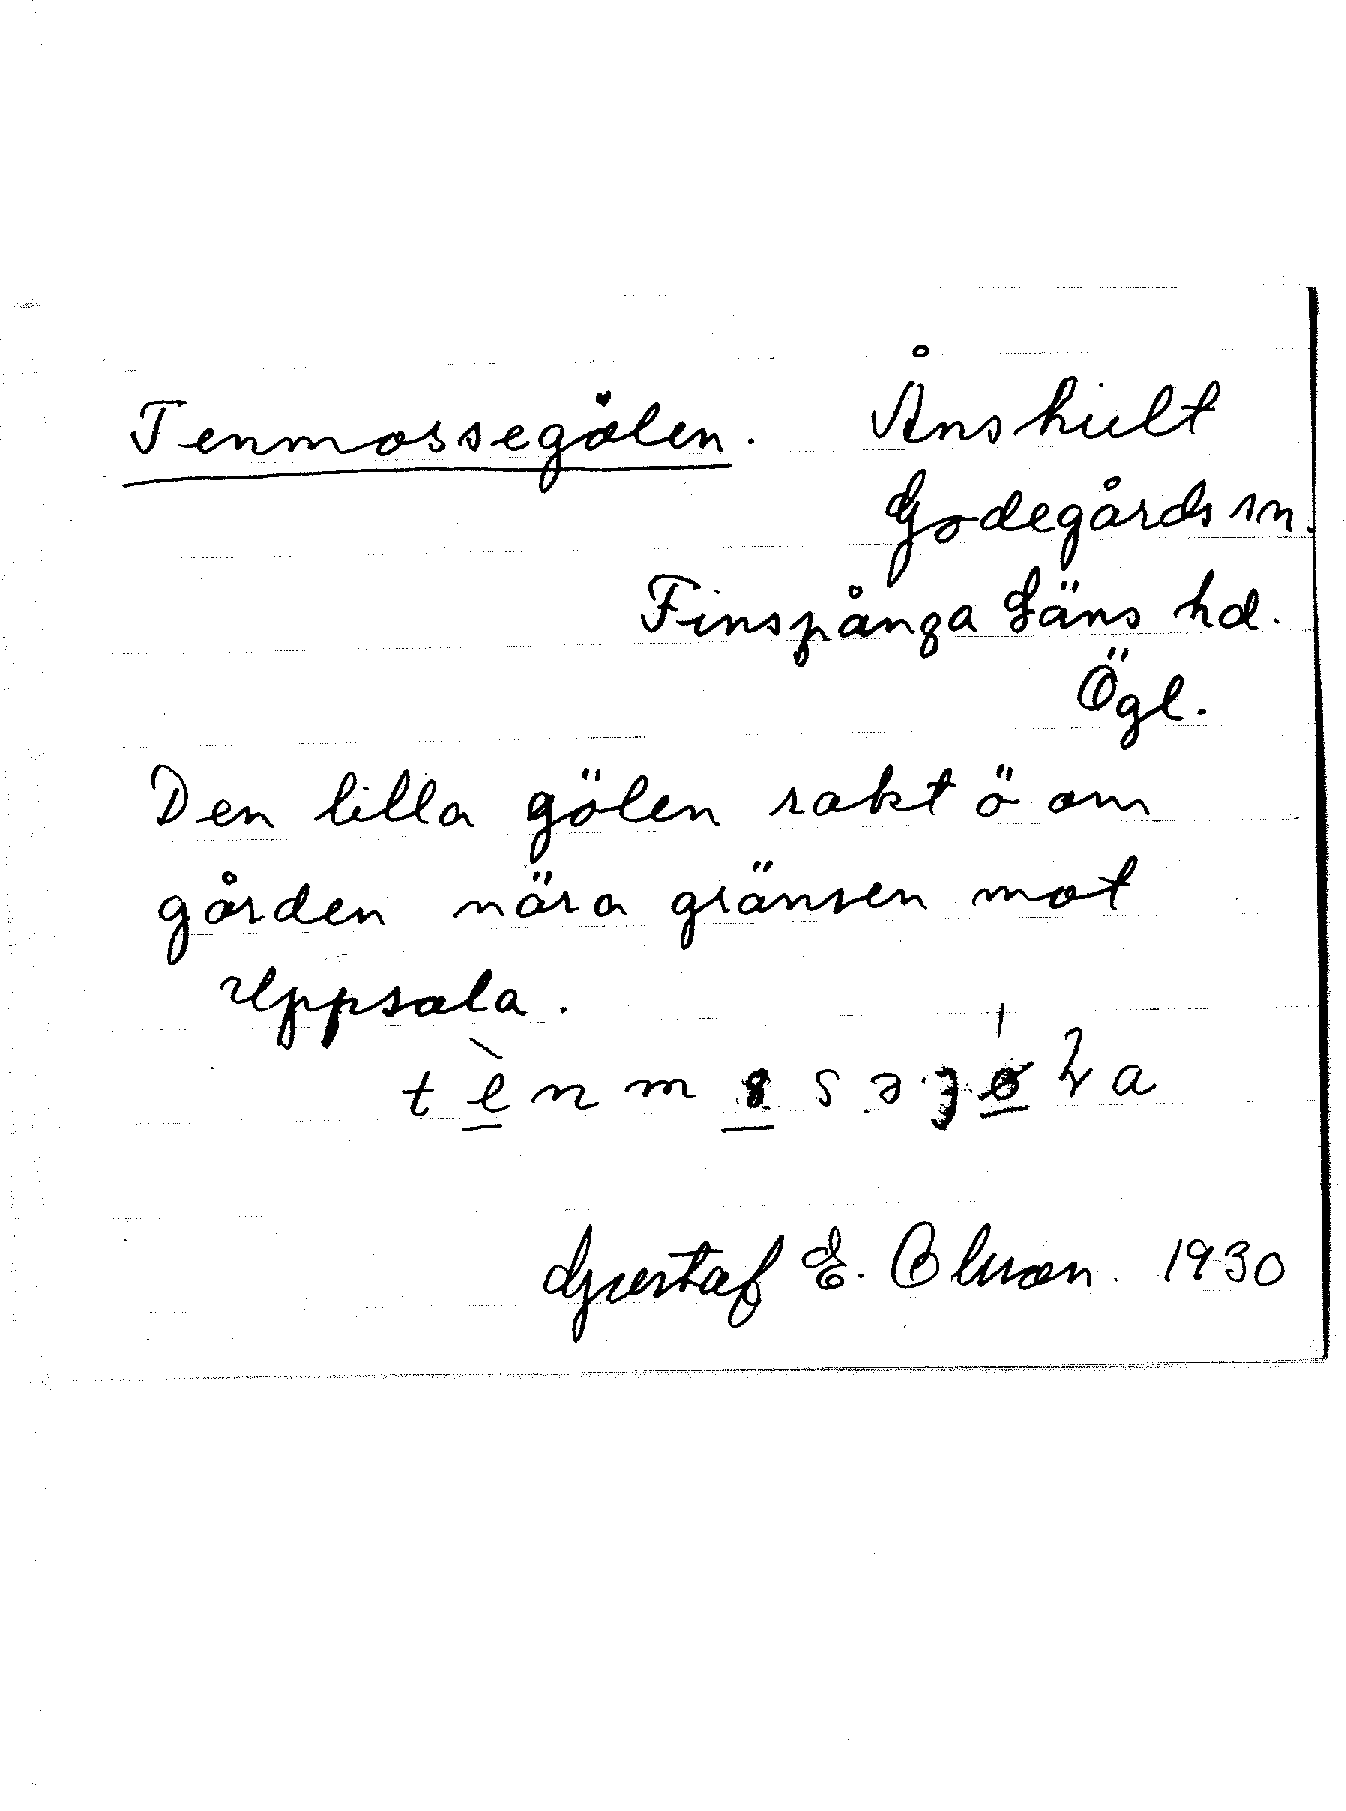 Tenmossegölen. Ånshult
Godegårds sn.
Finspånga Läns hd.
Ögl.
Den lilla gölen rakt ö om
gården nära gränsen mot
Uppsala.
Gustaf E. Olsson. 1930